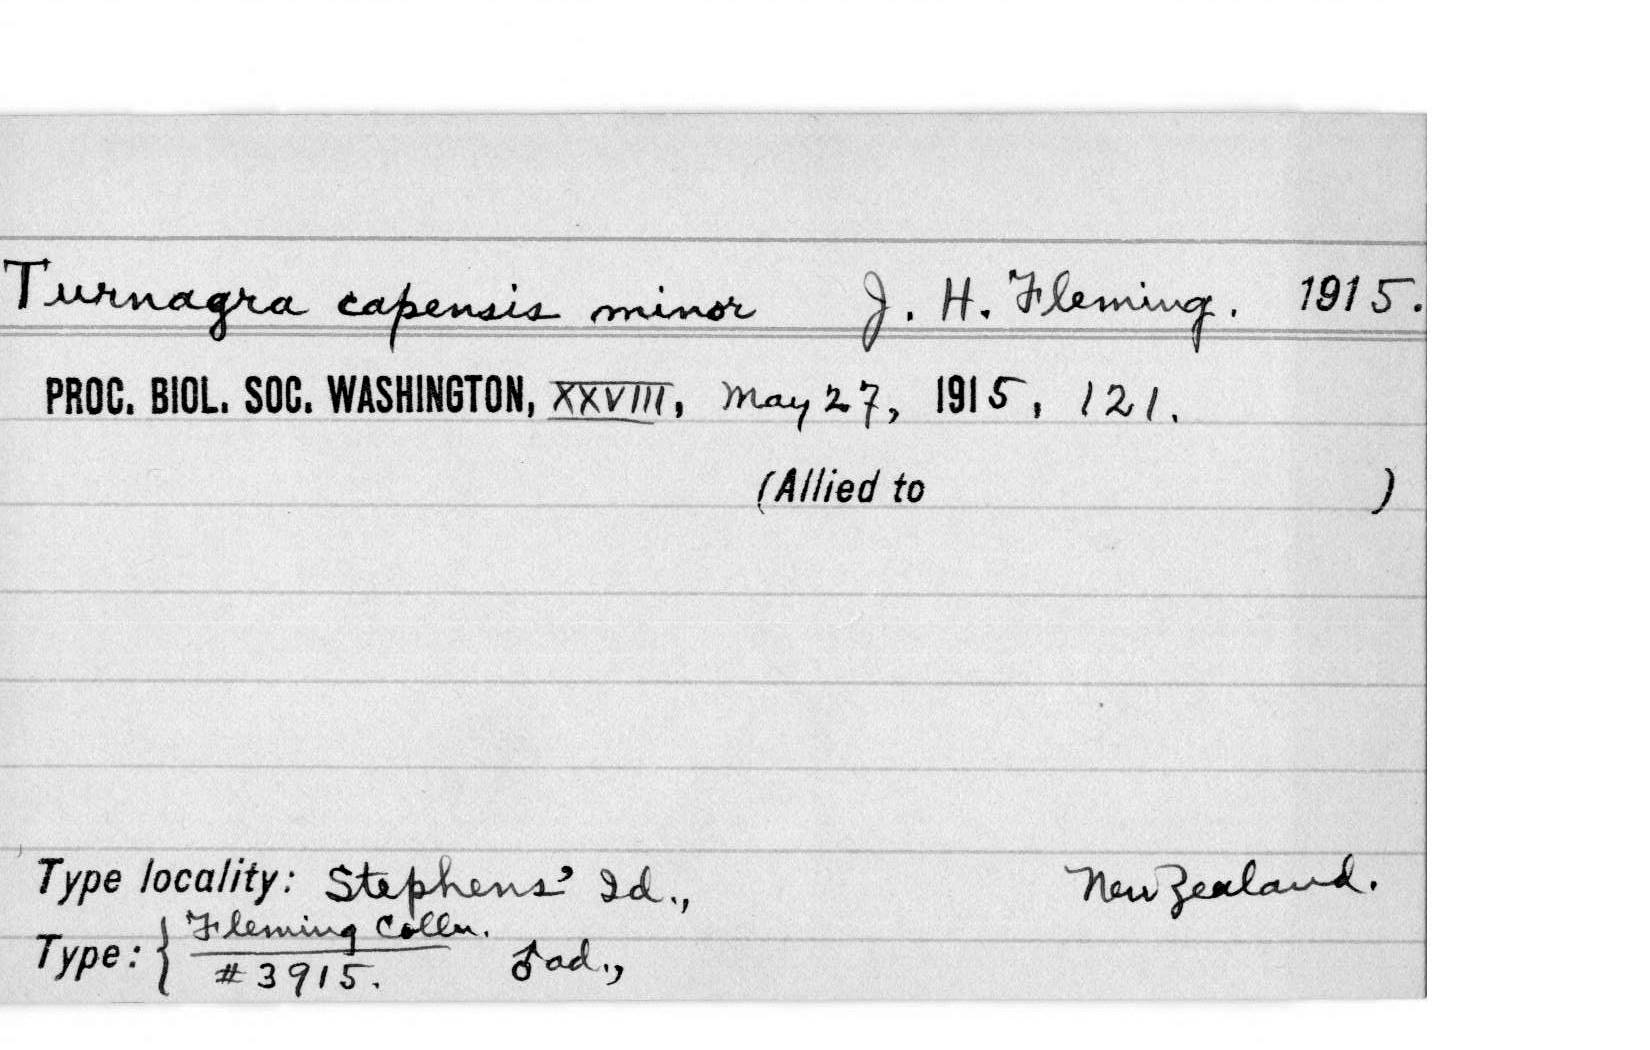 Turnagra capensis minor J. H. Fleming. 1915.
PROC. BIOL. SOC. WASHINGTON, XXVIII, May 27, 1915, 121.
(Allied to )
Type locality: Stephens' Id., New Zealand.
Type: { Fleming Colln.
#3915. ♂ ad.,